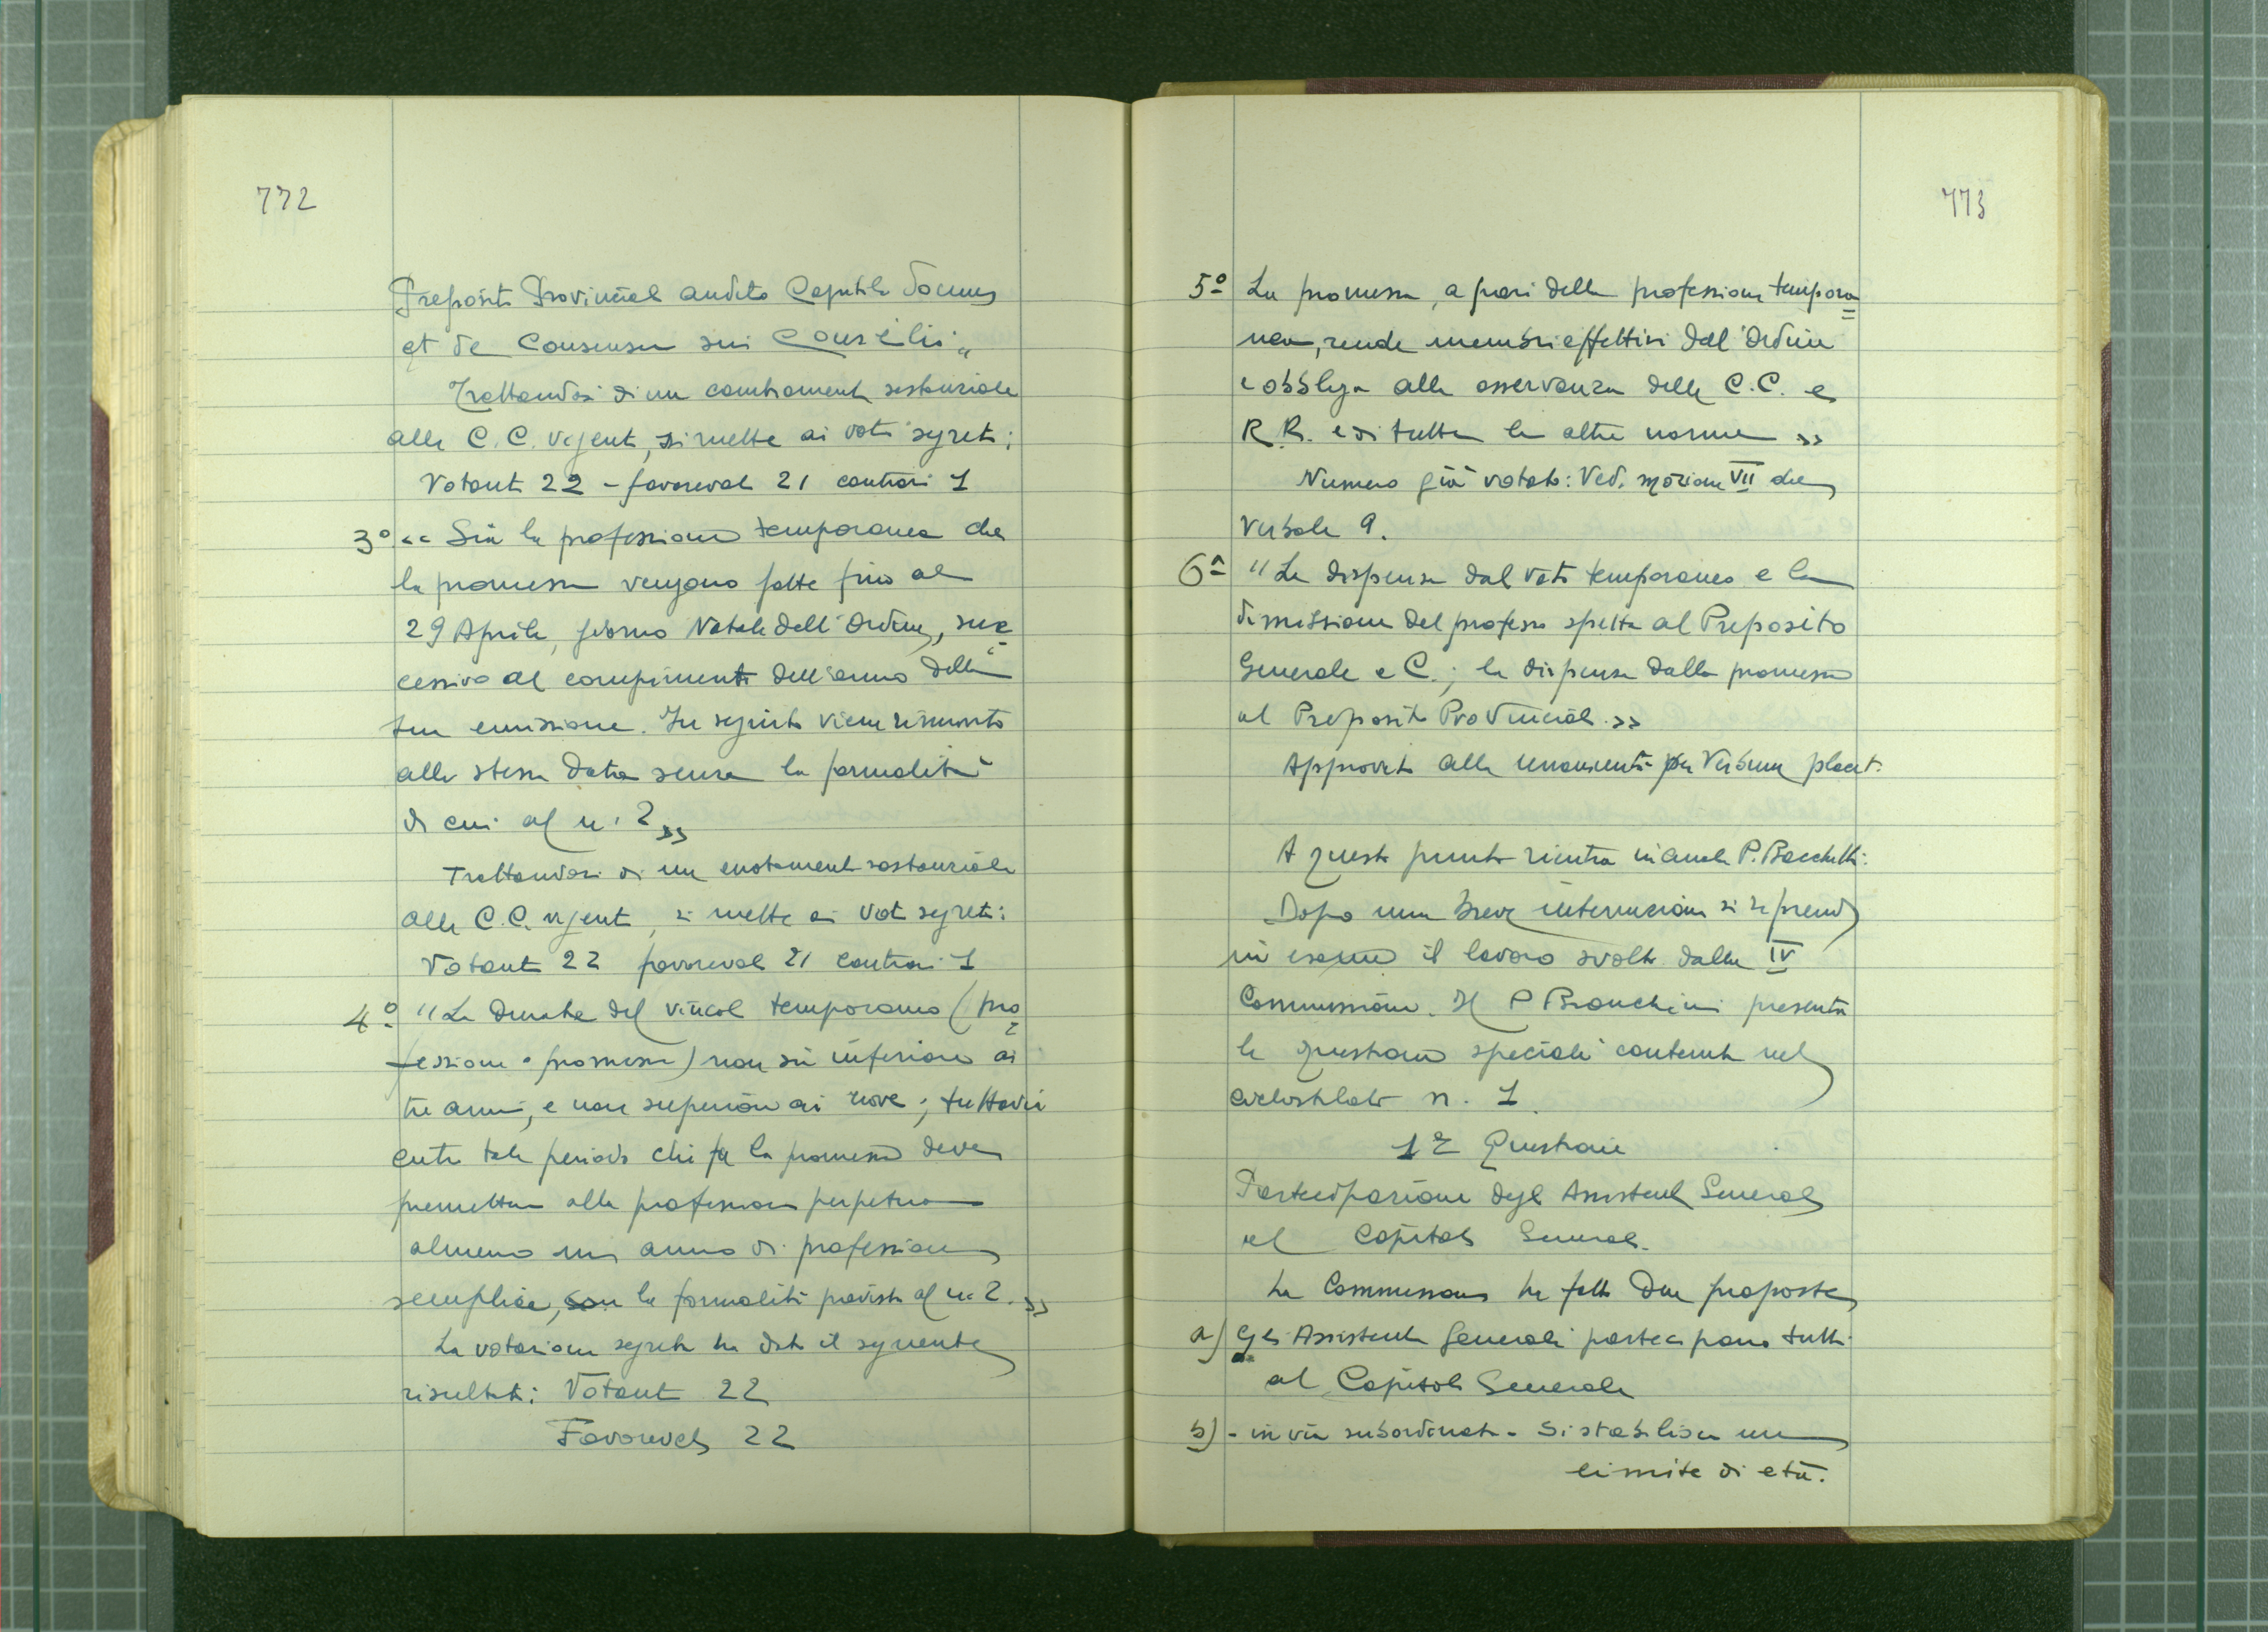 772
Preposito Provinciali audito Capitulo Domus
et de consensu sui Consilii„
Trattandosi di un cambiamento sostanziale
alle C.C. vigenti, si mette ai voti segreti:
Votanti 22 – favorevoli 21 contrari 1
3º «Sia la professione temporanea che
la promessa vengono fatte fino al
29 Aprile, giorno Natale dell'Ordine, suc=
cessivo al compimento dell'anno della
sua emissione. In seguito viene rinnovata
alla stessa data senza la formalità
di cui al n. 2»
Trattandosi di un mutamento sostanziale
alle C.C. vigenti, si mette ai voti segreti:
Votanti 22 favorevoli 21 contrari 1
4º "La durata del vincolo temporaneo (pro=
fessione o promessa) non sia inferiore ai
tre anni, e non superiore ai nove; tuttavia
entro tale periodo chi fa la promessa deve
premettere alla professione perpetua
almeno un anno di professione
semplice, con la formalità prevista al n. 2.»
La votazione segreta ha dato il seguente
risultato: Votanti 22
Favorevoli 22
773
5º La promessa, a pari della professione tempora=
nea, rende membri effettivi dell'Ordine
e obbliga alla osservanza delle C.C. e
R.R. e di tutte le altre norme»
Numero già votato: Ved. mozione VII del
Verbale 9.
6º "La dispensa dal voto temporaneo e la
dimissione del professo spetta al Preposito
Generale e C.; la dispensa dalla promessa
al Preposito Provinciale.»
Approvato alla unanimità per Verbum placet.
A questo punto rientra in aula P. Bacchetti.
Dopo una breve interruzione si riprende
in esame il lavoro svolto dalla IV
Commissione. Il P Bianchini presenta
le questioni speciali contenute nel
ciclostilato n. 1.
1ª Questione
Partecipazione degli Assistenti Generali
al Capitolo Generale.
La Commissione ha fatto due proposte
a) Gli Assistenti Generali partecipano tutti
al Capitolo Generale
b) - in via subordinata - Si stabilisca un
limite di età.